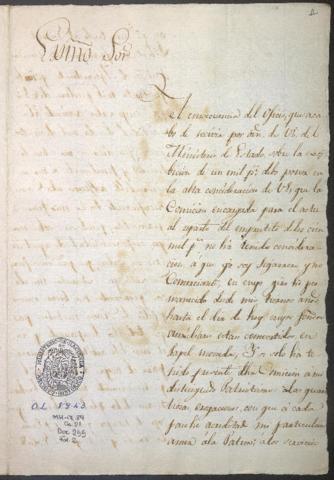 2
Exmo Sor
En consecuencia del Oficio, que aca-
bo de recivir por ôrn. de V.E. del
Ministerio de Estado, sobre la exi-
bicion de un mil ps. debo poner en
la alta consideracion de V.E. que la
Comision encargada para el actu-
al reparto del empréstito de los cien
mil ps. no ha tenido considera-
cion á que yo soy Segarrero y no
Comerciante, en cuyo giro hé per-
manecido desde mis tiernos años
hasta el dia de hoy cuyos fondos
tambien estan convertidos en
Papel moneda. Si solo ha te-
nido presente dha Comision a mi
distinguido Patriotismo a las quan-
tiosas erogaciones, con que á cada
paso he acreditado mi particular
amor á la Patria; a los servicios
MINISTERIO DE HACIENDA
O.L. 58-43